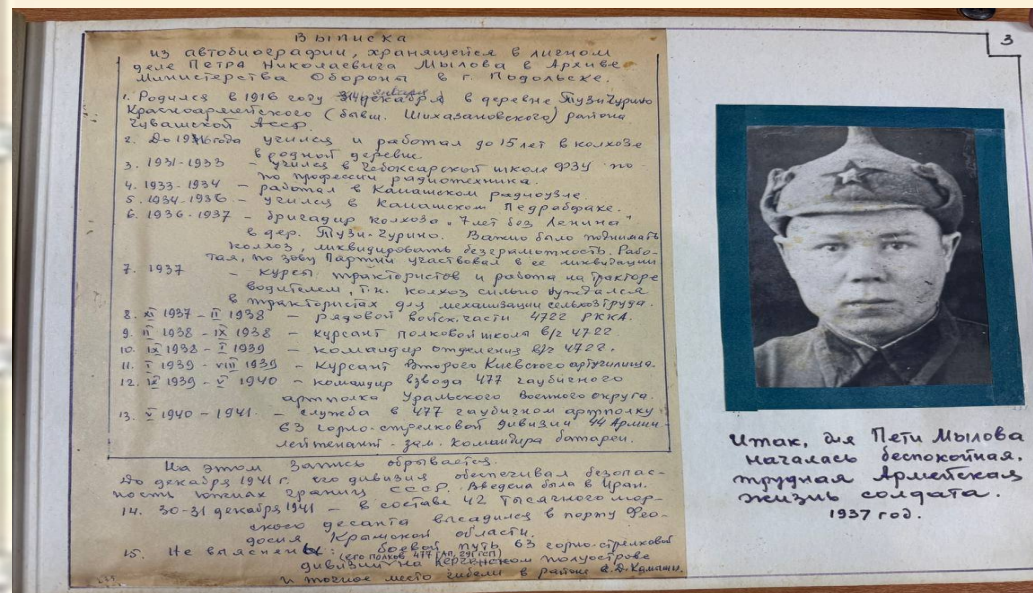 3
Выписка
из автобиографии, хранящейся в личном
деле Петра Николаевича Мылова в Архиве
Министерства Обороны в г. Подольске.
1. Родился в 1916 году января в деревне Тузи-Чурино
Красноармейского (бывш. Шихазановского) района
Чувашской АССР.
2. До года учился и работал до 15 лет в колхозе
в родной деревне.
3. 1931-1933 – учился в Чебоксарской школе ФЗУ по-
по профессии радиотехника.
4. 1933-1934 – работал в Канашском радиоузле.
5. 1934-1936 – учился в Канашском Педрабфаке.
6. 1936-1937 – бригадир колхоза „7 лет без Ленина"
в дер. Тузи-Чурино. Важно было поднимать
колхоз, ликвидировать безграмотность. Рабо-
тая, по зову Партии участвовал в её ликвидации
7. 1937 – курсы трактористов и работа на тракторе
водителем, т.к. колхоз сильно нуждался
в трактористах для механизации сельхозтруда.
8. XI 1937 – II 1938 – рядовой войск. части 4722 РККА.
9. II 1938 – IX 1938 – курсант полковой школы в/ч 4722.
10. IX 1938 – I 1939 – командир отделения в/ч 4722.
11. I 1939 – VIII 1939 – курсант Второго Киевского артучилища.
12. IX 1939 – V 1940 – командир взвода 477 гаубичного
артполка Уральского Военного округа.
13. V 1940 – 1941 – служба в 477 гаубичном артполку
63 горно-стрелковой дивизии 44 Армии –
лейтенант – зам. командира батареи.
На этом запись обрывается.
До декабря 1941 г. его дивизия обеспечивал безопас-
ность южных границ СССР. Введена была в Иран.
14. 30-31 декабря 1941 – в составе 42 тысячного мор-
ского десанта высадился в порту Фео-
досия Крымской области.
15. Не выяснены: боевой путь 63 горно-стрелковой
(его полков 477 АП, 291 ГСП)
дивизии на Керченском полуострове
и точное место гибели в районе
Итак, для Пети Мылова
началась беспокойная,
трудная Армейская
жизнь солдата.
1937 год.